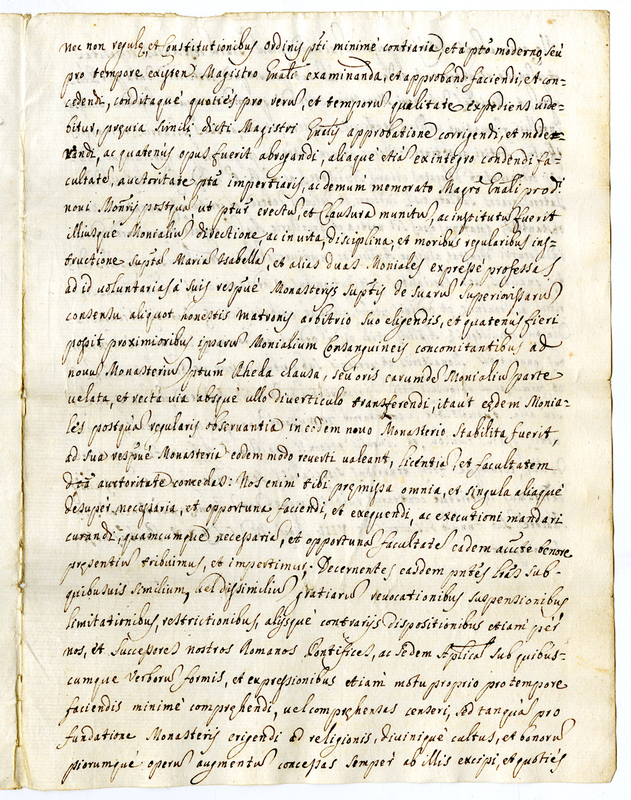 nec non regulę, et Constitutionibus Ordinis pti minimè contraria, et à pto moderno, seù
pro tempore existen Magistro Gnāli examinanda, et approband faciendi, et con-
cedendi, conditaquè quotiès pro verū, et temporū qualitate expediens vide-
bitur, pręvia simili dicti Magistri Gnālis approbatione corrigendi, et mode-
randi, ac quatenùs opus fuerit abrogandi, aliaquè etiā ex integro condendi fa-
cultatē, auctoritate ptā impertiaris, ac demùm memorato Magrō Gnāli prodi
novi Monrii postquā ut ptur erectū, et Clausura munitū, ac institutū fuerit
illiusque Monialiū directione, ac in vita, disciplina, et moribus regularibus ins-
tructione suptā Mariā Isabellā, et alias duas Moniales expressè professas
ad id voluntarias à suis respuè Monasteriis suptis de suarū superiorissarū
consensu aliquot honestis matronis arbitrio suo eligendis, et quatenùs fieri
possit proximioribus ipsarū Monialium Consanguineis concomitantibus ad
novū Monasteriū ptum Rheda clausa, seù oris earumdē Monialiū parte
velata, et recta via absque ullo diverticulo transferendi, ita ut eędem Monia-
lès postquā regularis observantia in eodem novo Monasterio stabilita fuerit,
ad sua respuè Monasteria eodem modo reverti valeant, licentiā, et facultatem
dtā auctoritate concedas: Nos enim tibi pręmissa omnia, et singula aliaquè
desupèr necessaria, et opportuna faciendi, et exequendi, ac executioni mandari
curandi, quamcumquè necessariā, et opportunā facultatē eadem aucte tenore
pręsentiū tribuimus, et impertimur; Decernentes easdem pntes lrās sub
quibusvis similium, vel dissimiliū gratiarū revocationibus suspensionibus
limitationibus, restrictionibus, aliisquè contrariis dispositionibus etiam pèr
nos, et successores nostros Romanos Pontifices, ac sedem Aplicā sub quibus-
cumque verborū formis, et expressionibus etiam motu proprio pro tempore
faciendis minimè compręhendi, vel compręhensas censeri, sed tanquā pro
fundatione Monasterii erigendi ad religionis, divinique cultus, et bonorū
piorumquè operū augmentū concessas sempèr ab illis excipi, et quotiès